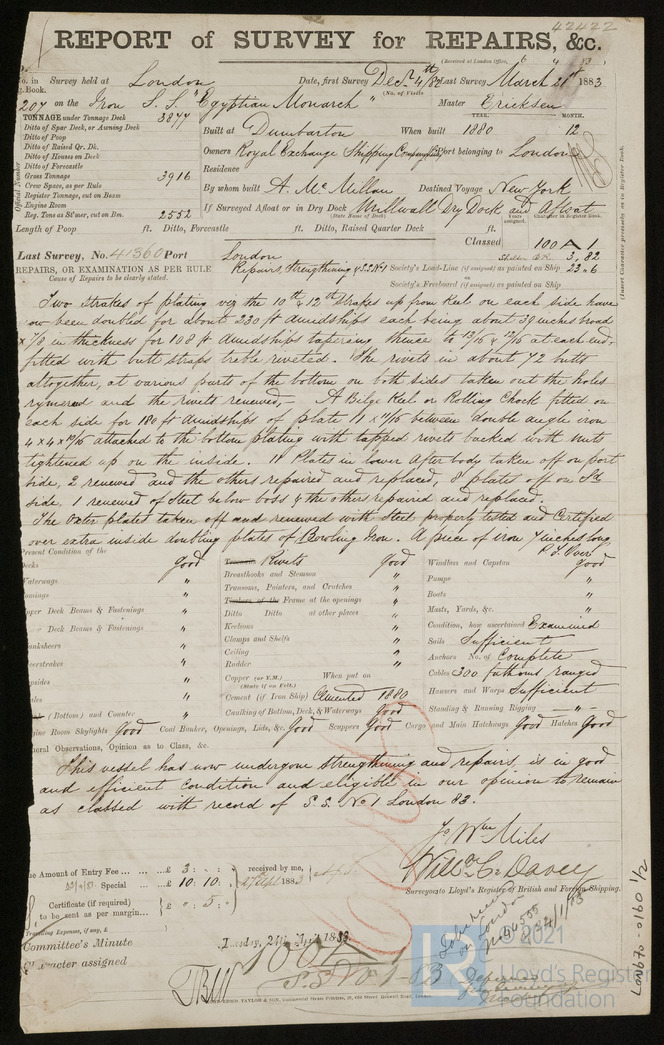 42422
REPORT of SURVEY for REPAIRS, &c.
(Received at London Office,
No. in Survey held at London Date, first Survey Decr 4th/82 Last Survey March 21st 1883
Book. (No. of Visits)
207 on the Iron S.S. "Egyptian Monarch" Master Ericksen
TONNAGE under Tonnage Deck 3877
YEAR. MONTH.
Ditto of Spar Deck, or Awning Deck
Built at Dumbarton When built 1880 12
Ditto of Poop
Ditto of Raised Qr. Dk.
Owners Royal Exchange Shipping Company Port belonging to London
Ditto of Houses on Deck
Ditto of Forecastle
Residence
Gross Tonnage 3916
Crew Space, as per Rule
By whom built A. McMillan Destined Voyage New York
Register Tonnage, cut on Beam
Engine Room
If Surveyed Afloat or in Dry Dock Millwall Dry Dock and Afloat
(State Name of Dock)
Reg. Tons as St'mer, cut on Bm. 2552
Official Number
(Insert Character precisely as in Register Book.
Length of Poop ft. Ditto, Forecastle ft. Ditto, Raised Quarter Deck ft.
Classed 100 A 1
3, 82
Last Survey, No. 41360 Port London
REPAIRS, OR EXAMINATION AS PER RULE Repairs Strengthening & S.S. No 1 Society's Load-Line (if assigned) as painted on Ship 23.6
Cause of Repairs to be clearly stated.
Society's Freeboard (if assigned) as painted on Ship
Two strakes of plating viz the 10th & 12th strakes up from Keel on each side have
now been doubled for about 230 ft amidships each being about 39 inches broad
x 7/8 in thickness for 108 ft amidships tapering thence to 13/16 & 12/16 at each end,
fitted with butt straps treble riveted. The rivets in about 72 butts
altogether, at various parts of the bottom on both sides taken out the holes
rymered and the rivets renewed, - A Bilge Keel or Rolling Chock fitted on
each side for 180 ft amidships of plate 11 x 11/16 between double angle iron
4 x 4 x 9/16 attached to the bottom plating with tapped rivets backed with nuts
tightened up on the inside. 11 Plates in lower After body taken off on port
side, 2 renewed and the others repaired and replaced, 8 plates off on St
side, 1 renewed of Steel below boss & the others repaired and replaced.
The Oxter plates taken off and renewed with Steel properly tested and Certified
over extra inside doubling plates of Bowling Iron. A piece of iron 7 inches long
P.T. Over
Present Condition of the
Decks Good
Waterways "
Comings "
Upper Deck Beams & Fastenings "
Deck Beams & Fastenings "
Planksheers "
"
Topsides "
"
(Bottom) and Counter "
Treenails Rivets Good
Breasthooks and Stemson "
Transoms, Pointers, and Crutches "
Timbers of the Frame at the openings "
Ditto Ditto at other places "
Keelsons "
Clamps and Shelfs "
Ceiling "
Rudder "
Copper (or Y.M.) When put on
(State if on Felt.)
Cement (if Iron Ship) Cemented 1880
Caulking of Bottom, Deck, & Waterways Good
Windlass and Capstan Good
Pumps "
Boats "
Masts, Yards, &c. "
Condition, how ascertained Examined
Sails Sufficient
Anchors No. of Complete
Cables 300 fathoms ranged
Hawsers and Warps Sufficient
Standing & Running Rigging "
Engine Room Skylights Good Coal Bunker, Openings, Lids, &c. Good Scuppers Good Cargo and Main Hatchways Good Hatches Good
General Observations, Opinion as to Class, &c.
This vessel has now undergone strengthening and repairs, is in good
and efficient condition and eligible in our opinion to remain
as classed with record of S.S. No 1 London 83.
Jo Wm Miles
Willm C. Davey
Surveyors to Lloyd's Register of British and Foreign Shipping.
The Amount of Entry Fee ... ... £ 3 : : received by me,
Special ... £ 10 : 10 : 1883
Certificate (if required) £ " : 5 :
to be sent as per margin...
Travelling Expenses, if any, £
Committee's Minute Tuesday, 24th April 1883
Character assigned 100A1
S.S. No 1-83
LR
© 2021
Lloyd's Register
Foundation
LON670-0160 1/2